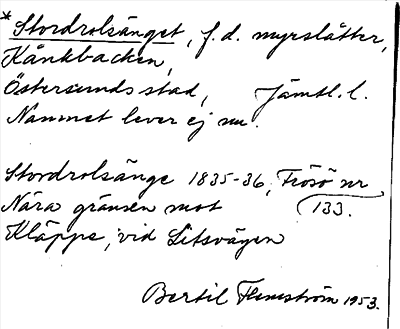 *Stordrolsänget, f.d. myrslåtter,
Kånkbacken,
Östersunds stad, Jämtl. l.
Namnet lever ej nu.
Stordrolsänge 1835-36, Frösö nr
Nära gränsen mot 133.
Kläppe, vid Litsvägen
Bertil Flemström 1953.